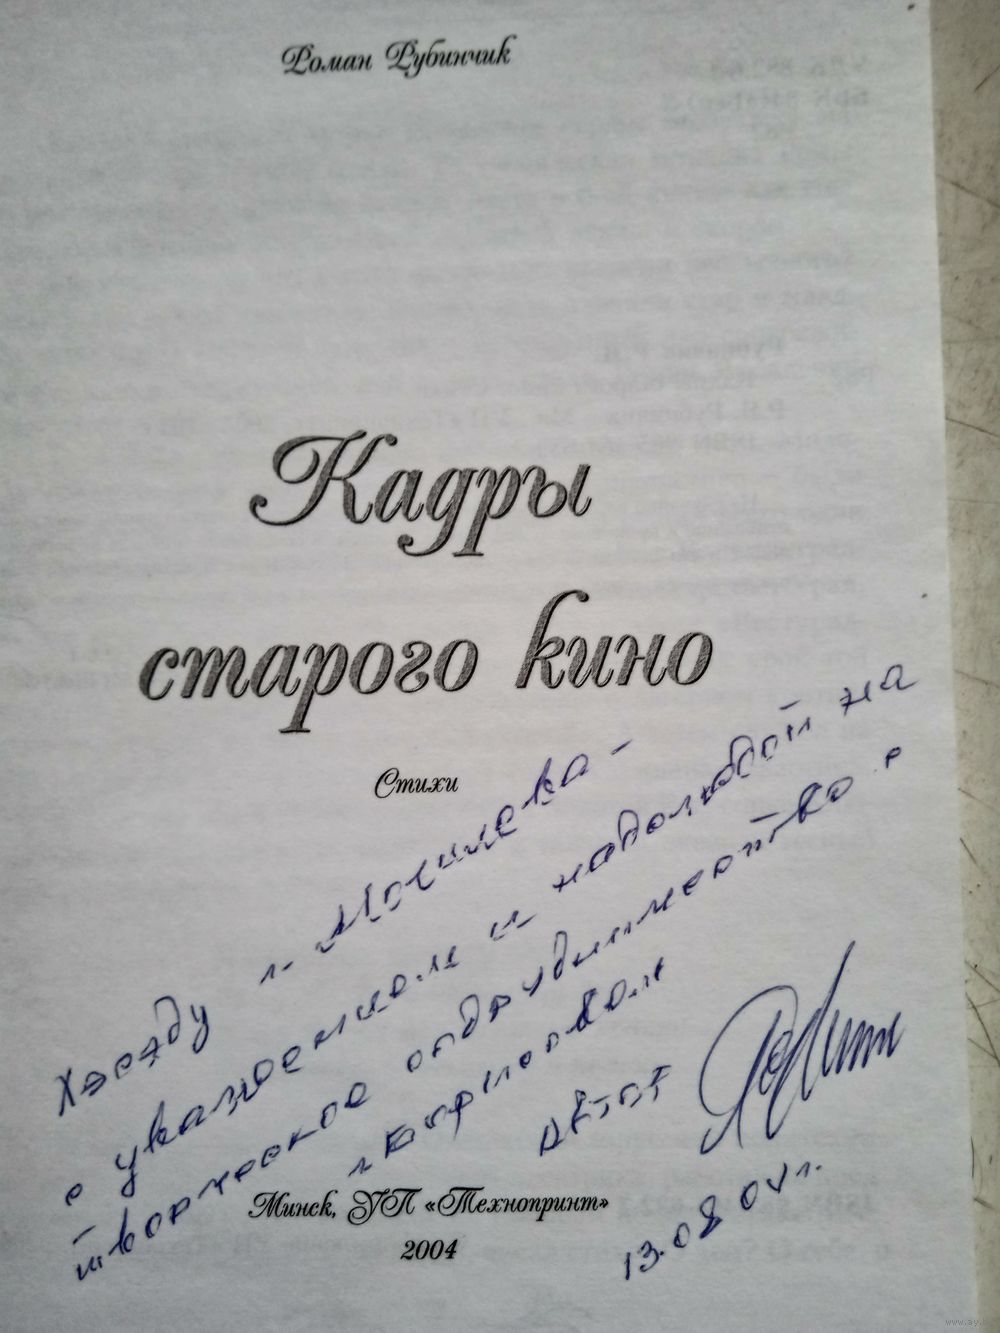 Роман Рубинчик
Кадры
старого кино
Стихи
Хэсэду г. Могилева –
с уважением и надеждой на
творческое содружество с
г. Борисовом
Автор
13.08.04 г.
Минск, УП «Технопринт»
2004
www.ay.by